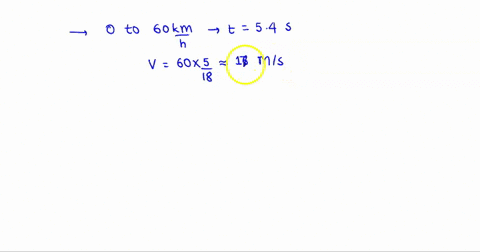 → 0 to 60 km/h → t = 5.4 s
V = 60 × 5/18 ≈ m/s